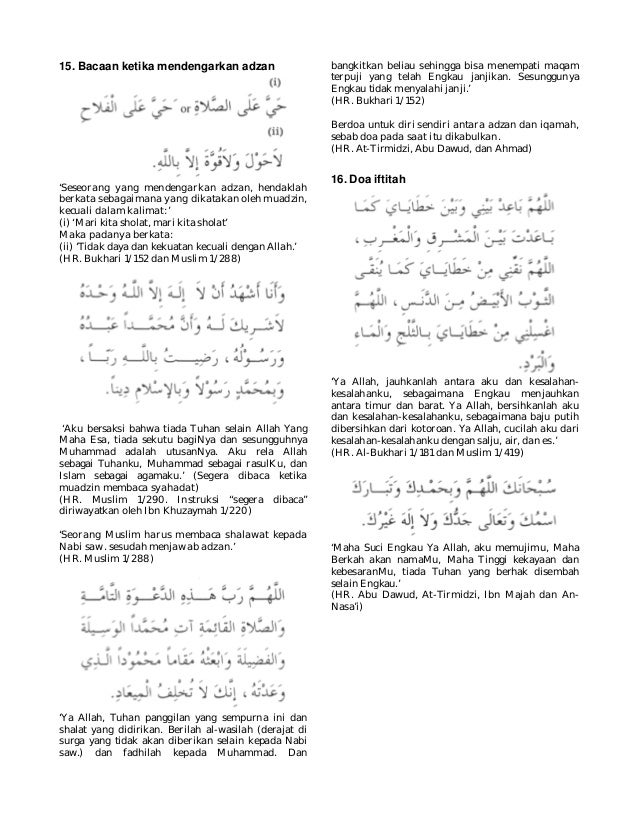 15. Bacaan ketika mendengarkan adzan
(i)
حَيَّ عَلَى الصَّلاَةِ or حَيَّ عَلَى الْفَلاَحِ
(ii)
لاَحَوْلَ وَلاَقُوَّةَ إِلاَّ بِاللَّهِ.
‘Seseorang yang mendengarkan adzan, hendaklah
berkata sebagaimana yang dikatakan oleh muadzin,
kecuali dalam kalimat: ’
(i) ‘Mari kita sholat, mari kita sholat’
Maka padanya berkata:
(ii) ‘Tidak daya dan kekuatan kecuali dengan Allah.’
(HR. Bukhari 1/152 dan Muslim 1/288)
وَأَنَا أَشْهَدُ أَنْ لاَ إِلَهَ إِلاَّ اللَّهُ وَحْدَهُ
لاَشَرِيكَ لَهُ وَأَنَّ مُحَمَّداً عَبْدُهُ
وَرَسُوْلُهُ، رَضِيتُ بِاللَّهِ رَبًّا،
وَبِمُحَمَّدٍ رَسُوْلاً وَبِالإِسْلاَمِ دِيناً.
‘Aku bersaksi bahwa tiada Tuhan selain Allah Yang
Maha Esa, tiada sekutu bagiNya dan sesungguhnya
Muhammad adalah utusanNya. Aku rela Allah
sebagai Tuhanku, Muhammad sebagai rasulKu, dan
Islam sebagai agamaku.’ (Segera dibaca ketika
muadzin membaca syahadat)
(HR. Muslim 1/290. Instruksi “segera dibaca”
diriwayatkan oleh Ibn Khuzaymah 1/220)
‘Seorang Muslim harus membaca shalawat kepada
Nabi saw. sesudah menjawab adzan.’
(HR. Muslim 1/288)
اللَّهُمَّ رَبَّ هَذِهِ الدَّعْوَةِ التَّامَّةِ
وَالصَّلاَةِ القَائِمَةِ آتِ مُحَمَّداً الوَسِيلَةَ
وَالفَضِيلَةَ وَابْعَثْهُ مَقَاماً مَحْمُوْداً الَّذِي
وَعَدْتَهُ، إِنَّكَ لاَ تُخْلِفُ الْمِيعَادِ.
‘Ya Allah, Tuhan panggilan yang sempurna ini dan
shalat yang didirikan. Berilah al-wasilah (derajat di
surga yang tidak akan diberikan selain kepada Nabi
saw.) dan fadhilah kepada Muhammad. Dan
bangkitkan beliau sehingga bisa menempati maqam
terpuji yang telah Engkau janjikan. Sesunggunya
Engkau tidak menyalahi janji.’
(HR. Bukhari 1/152)
Berdoa untuk diri sendiri antara adzan dan iqamah,
sebab doa pada saat itu dikabulkan.
(HR. At-Tirmidzi, Abu Dawud, dan Ahmad)
16. Doa iftitah
اللَّهُمَّ بَاعِدْ بَيْنِي وَبَيْنَ خَطَايَايَ كَمَا
بَاعَدْتَ بَيْنَ الْمَشْرِقِ وَالْمَغْرِبِ،
اللَّهُمَّ نَقِّنِي مِنْ خَطَايَايَ كَمَا يُنَقَّى
الثَّوْبُ الأَبْيَضُ مِنَ الدَّنَسِ، اللَّهُمَّ
اغْسِلْنِي مِنْ خَطَايَايَ بِالثَّلْجِ وَالْمَاءِ
وَالْبَرَدِ.
‘Ya Allah, jauhkanlah antara aku dan kesalahan-
kesalahanku, sebagaimana Engkau menjauhkan
antara timur dan barat. Ya Allah, bersihkanlah aku
dan kesalahan-kesalahanku, sebagaimana baju putih
dibersihkan dari kotoroan. Ya Allah, cucilah aku dari
kesalahan-kesalahanku dengan salju, air, dan es.’
(HR. Al-Bukhari 1/181 dan Muslim 1/419)
سُبْحَانَكَ اللَّهُمَّ وَبِحَمْدِكَ وَتَبَارَكَ
اسْمُكَ وَتَعَالَى جَدُّكَ وَلاَ إِلَهَ غَيْرُكَ.
‘Maha Suci Engkau Ya Allah, aku memujimu, Maha
Berkah akan namaMu, Maha Tinggi kekayaan dan
kebesaranMu, tiada Tuhan yang berhak disembah
selain Engkau.’
(HR. Abu Dawud, At-Tirmidzi, Ibn Majah dan An-
Nasa’i)